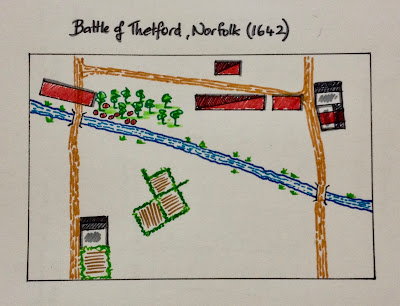 Battle of Thetford, Norfolk (1642)